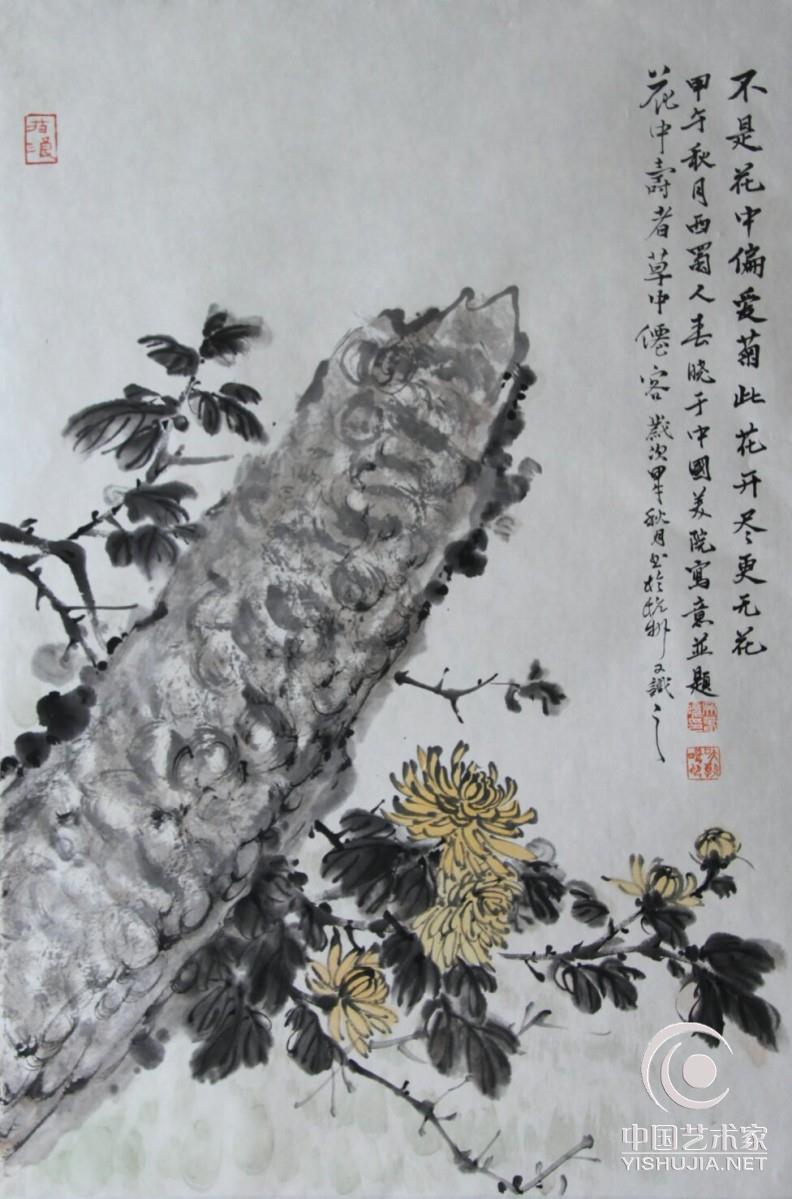 不是花中偏爱菊此花开尽更无花
甲午秋月西蜀人春晓于中國美院寫意並題
花中壽者草中僊客 歲次甲午秋月 又識之
中国艺术家
YISHUJIA.NET